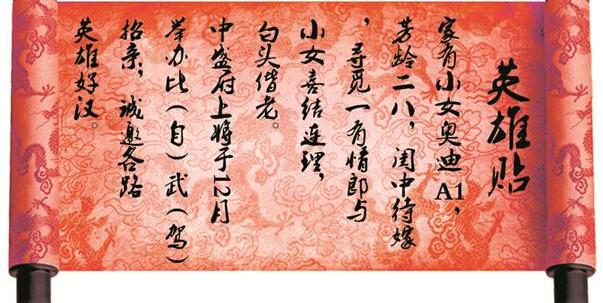 英雄贴
家有小女奥迪A1，
芳龄二八，闺中待嫁
，寻觅一有情郎与
小女喜结连理，
白头偕老。
中盛府上将于12月
举办比（自）武（驾）
招亲，诚邀各路
英雄好汉。